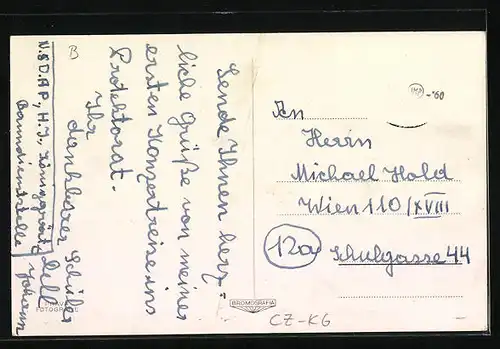 Sende Ihnen herz-
liche Grüße von meiner
ersten Konzertreise ins
Protektorat.
Ihr
dankbarer Schüler
N.S.D.A.P., H.J., Königgrätz
Banndienststelle
B
PRAVÁ
FOTOGRAFIE
BROMOGRAFIA
-.60
An
Herrn
Michael Hold
Wien 110/XVIII
12a
Schulgasse 44
CZ-KG